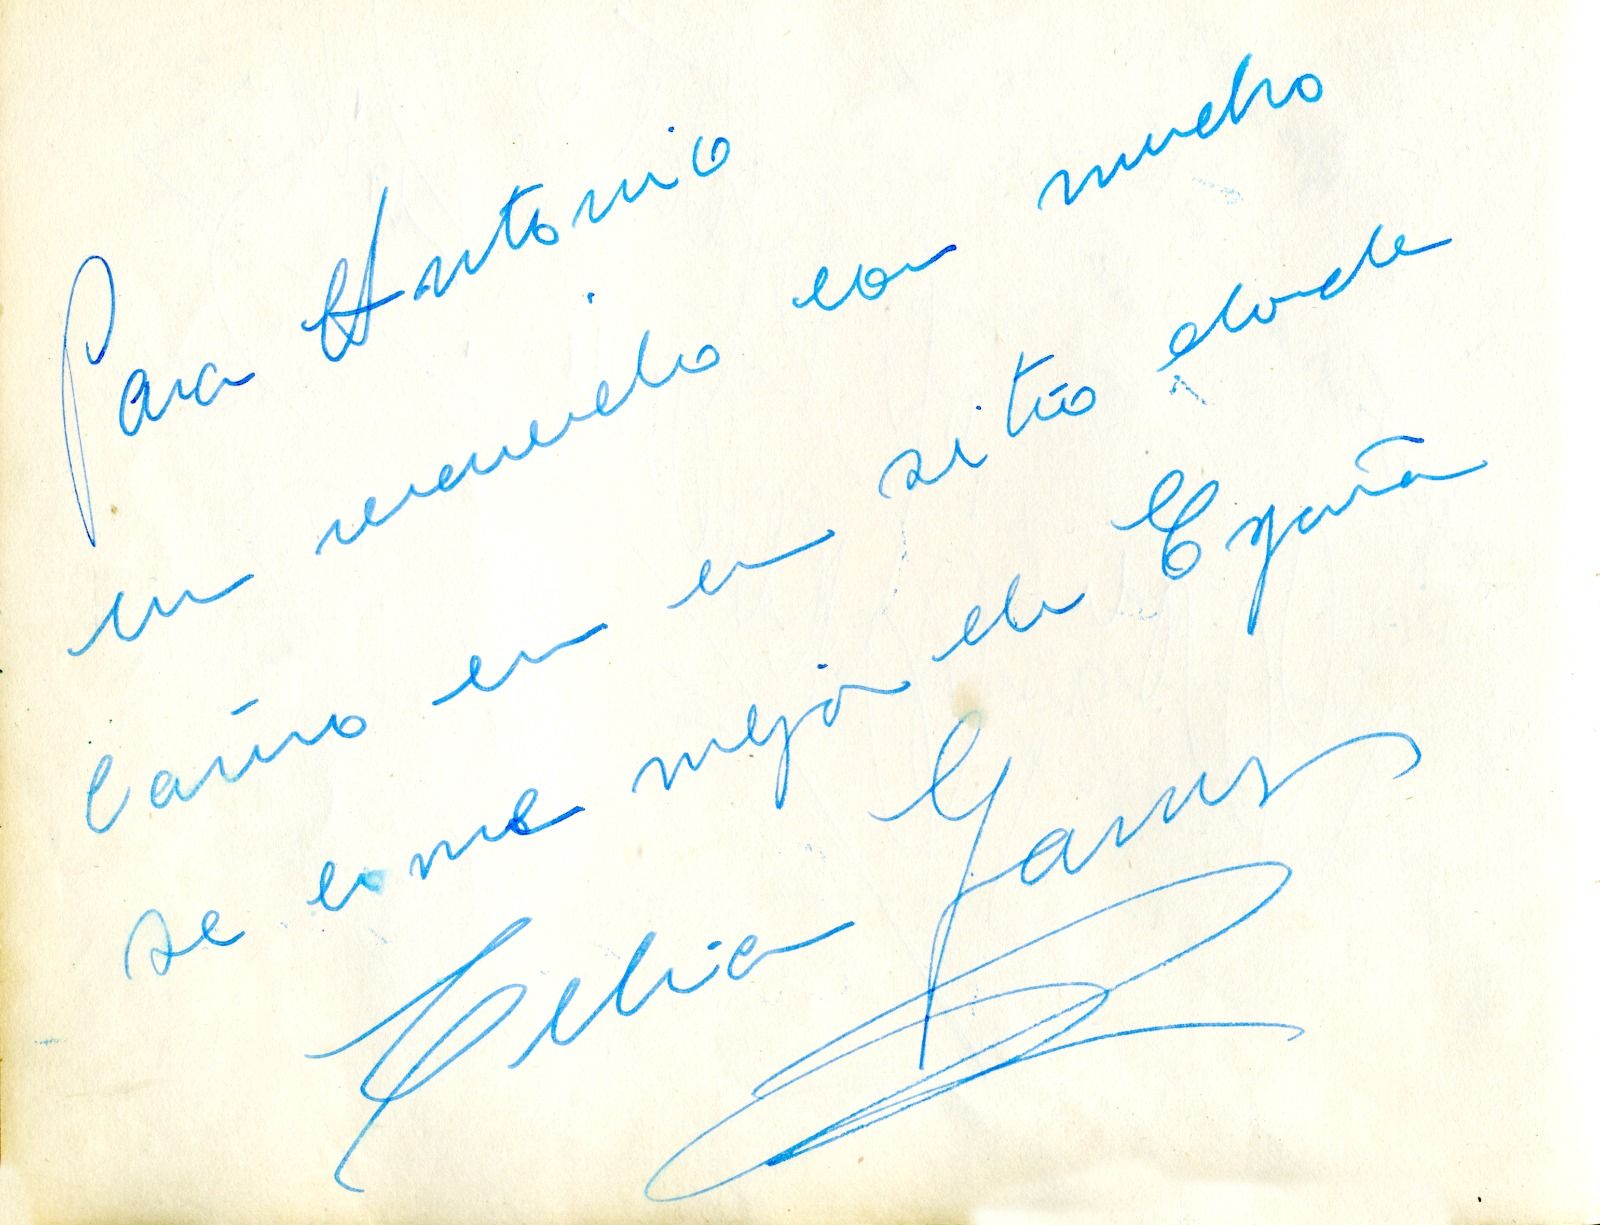 Para Antonio
un recuerdo con mucho
cariño en un sitio donde
se come mejor de España
Celia Gamez